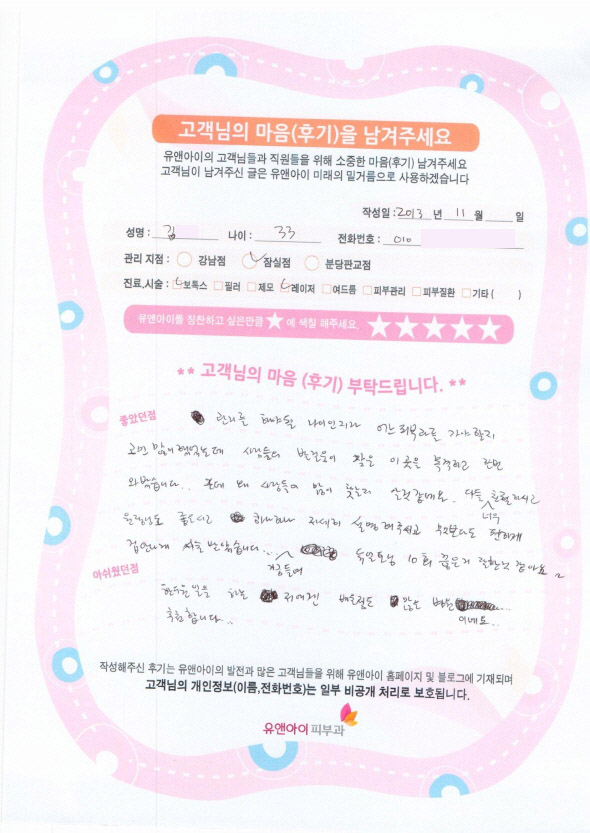 고객님의 마음(후기)을 남겨주세요
유앤아이의 고객님들과 직원들을 위해 소중한 마음(후기) 남겨주세요
고객님이 남겨주신 글은 유앤아이 미래의 밑거름으로 사용하겠습니다
작성일 : 2013 년 11 월 일
성명 : 김 나이 : 33 전화번호 : 010
관리 지점 : 강남점 잠실점 분당판교점
진료,시술 : 보톡스 필러 제모 레이저 여드름 피부관리 피부질환 기타 ( )
유앤아이를 칭찬하고 싶은만큼 ★ 에 색칠 해주세요. ★★★★★
** 고객님의 마음 (후기) 부탁드립니다. **
좋았던점
관리를 해야할 나이인지라 어느 피부과를 가야할지
고민 많이 했었는데 사람들의 발걸음이 잦은 이 곳을 한번
와봤습니다.. 왜 사람들이 많이 찾는지 알것같네요. 다들 친절하시고
너무
좋으시고 하나하나 자세히 설명해주시고 무엇보다도 편하게
시술 받았습니다...
10회 끊은거 잘한것 같아요
아쉬웠던점
하는 저에겐
추천합니다..
이네요..
작성해주신 후기는 유앤아이의 발전과 많은 고객님들을 위해 유앤아이 홈페이지 및 블로그에 기재되며
고객님의 개인정보(이름,전화번호)는 일부 비공개 처리로 보호됩니다.
유앤아이 피부과